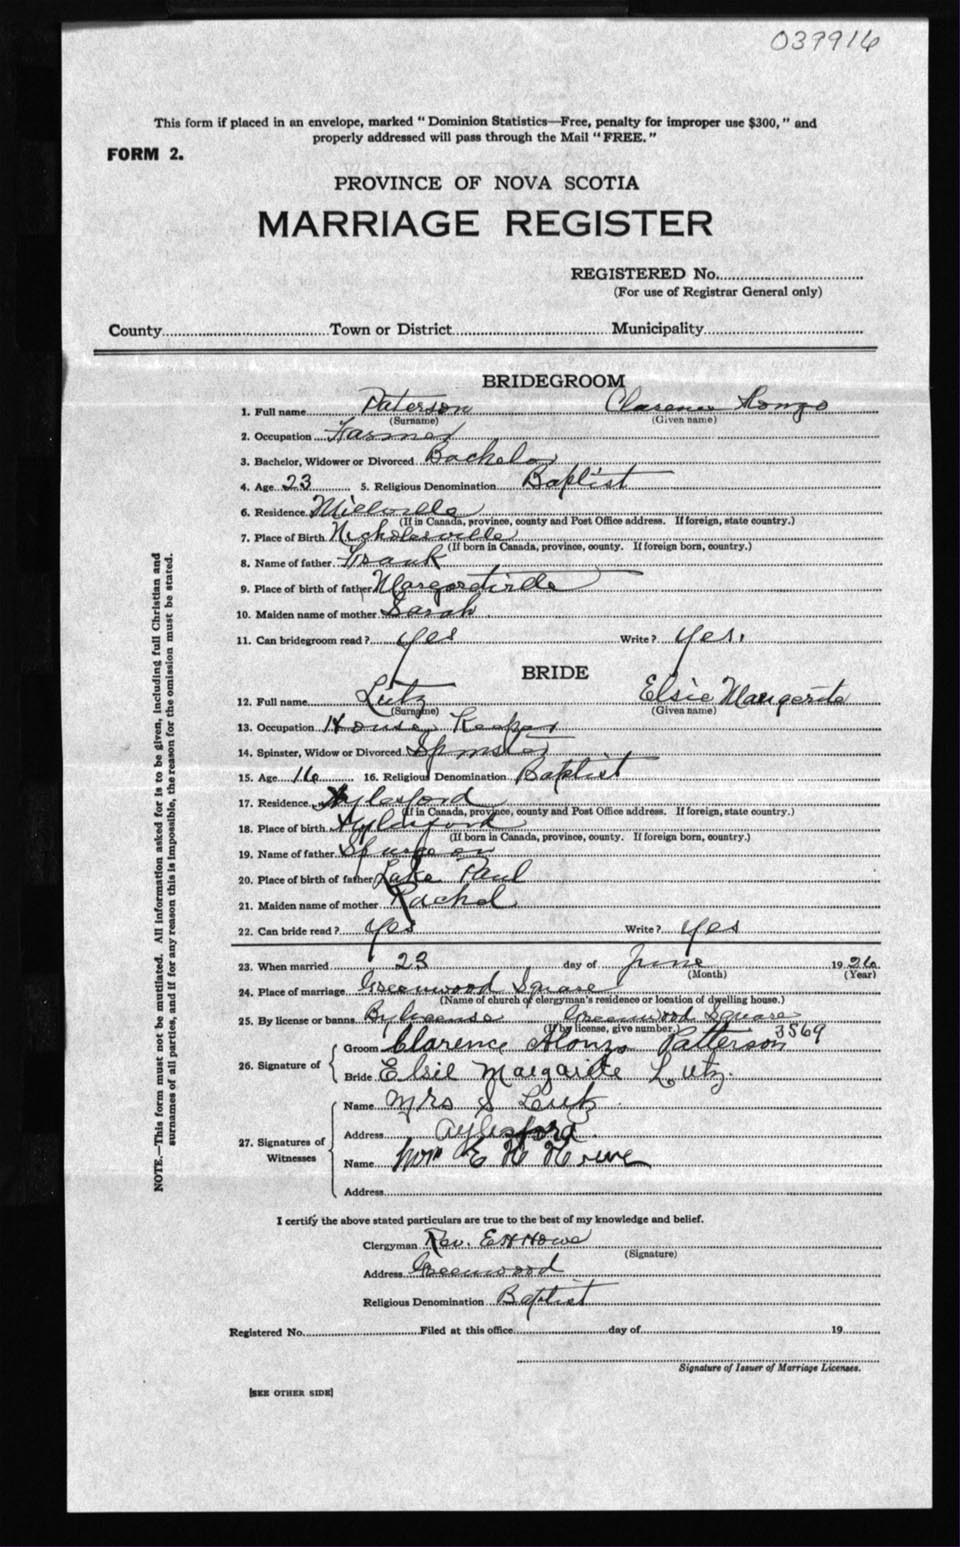 039916
This form if placed in an envelope, marked "Dominion Statistics—Free, penalty for improper use $300," and
properly addressed will pass through the Mail "FREE."
FORM 2.
PROVINCE OF NOVA SCOTIA
MARRIAGE REGISTER
REGISTERED No.
(For use of Registrar General only)
County Town or District Municipality
BRIDEGROOM
1. Full name Paterson Clarence Alonzo
(Surname) (Given name)
2. Occupation Farmer
3. Bachelor, Widower or Divorced Bachelor
4. Age 23 5. Religious Denomination Baptist
6. Residence
(If in Canada, province, county and Post Office address. If foreign, state country.)
7. Place of Birth Nicholasville
(If born in Canada, province, county. If foreign born, country.)
8. Name of father Frank
9. Place of birth of father Margaretville
10. Maiden name of mother Sarah
11. Can bridegroom read? yes Write? yes.
BRIDE
12. Full name Lutz Elsie Margerite
(Surname) (Given name)
13. Occupation House Keeper
14. Spinster, Widow or Divorced Spinster
15. Age 16 16. Religious Denomination Baptist
17. Residence Aylesford
(If in Canada, province, county and Post Office address. If foreign, state country.)
18. Place of birth Aylesford
(If born in Canada, province, county. If foreign born, country.)
19. Name of father Spurgeon
20. Place of birth of father Lake Paul
21. Maiden name of mother Rachel
22. Can bride read? yes Write? yes
23. When married 23 day of June 1926
(Month) (Year)
24. Place of marriage Greenwood Square
(Name of church of clergyman's residence or location of dwelling house.)
25. By license or banns By license Greenwood Square
(If by license, give number.) 3569
26. Signature of
Groom Clarence Alonzo Patterson
Bride Elsie Margarite Lutz.
27. Signatures of Witnesses
Name Mrs S Lutz
Address Aylesford.
Name Mrs E H Howe
Address
I certify the above stated particulars are true to the best of my knowledge and belief.
Clergyman Rev. E H Howe
(Signature)
Address Greenwood
Religious Denomination Baptist
Registered No. Filed at this office day of 19
Signature of Issuer of Marriage Licenses.
[SEE OTHER SIDE]
NOTE.—This form must not be mutilated. All information asked for is to be given, including full Christian and
surnames of all parties, and if for any reason this is impossible, the reason for the omission must be stated.